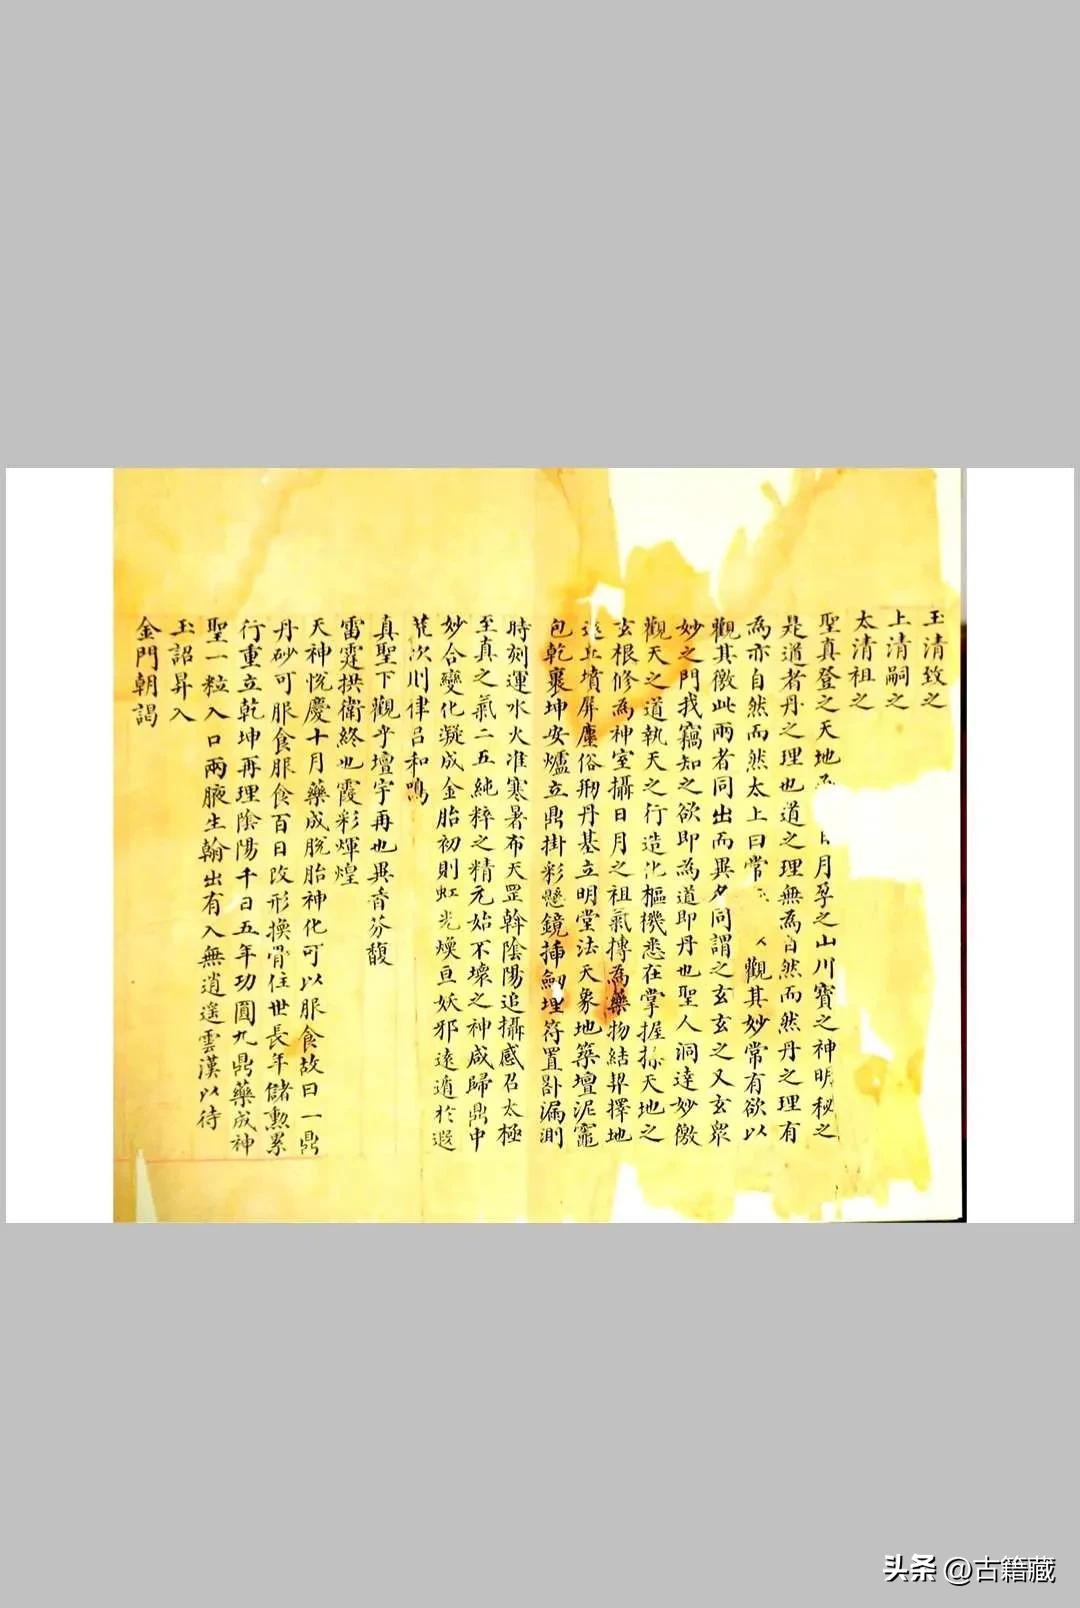 玉清致之
上清嗣之
太清祖之
聖真登之天地 月孕之山川寶之神明秘之
是道者丹之理也道之理無為自然而然丹之理有
為亦自然而然太上曰常 觀其妙常有欲以
觀其徼此兩者同出而異 同謂之玄玄之又玄眾
妙之門我竊知之欲即為道即丹也聖人洞達妙徼
觀天之道執天之行造化樞機悉在掌握 天地之
玄根修為神室攝日月之祖氣摶為藥物結 擇地
丘墳屏塵俗剏丹基立明堂法天象地築壇泥竈
包乾裹坤安爐立鼎掛彩懸鏡揷劒埋符置 漏測
時刻運水火准寒暑布天罡斡陰陽追攝感召太極
至真之氣二五純粹之精元始不壞之神咸歸鼎中
妙合變化凝成金胎初則虹光燦亘妖邪遠遁於遐
荒次則律呂和鳴
真聖下觀乎壇宇再也異香芬馥
雷霆拱衛終也霞彩煇煌
天神悅慶十月藥成脫胎神化可以服食故曰一鼎
丹砂可服食服食百日改形換骨住世長年儲勲累
行重立乾坤再理陰陽千日五年功圓九鼎藥成神
聖一粒入口兩腋生翰出有入無逍遙雲漢以待
玉詔昇入
金門朝謁
头条 @古籍藏